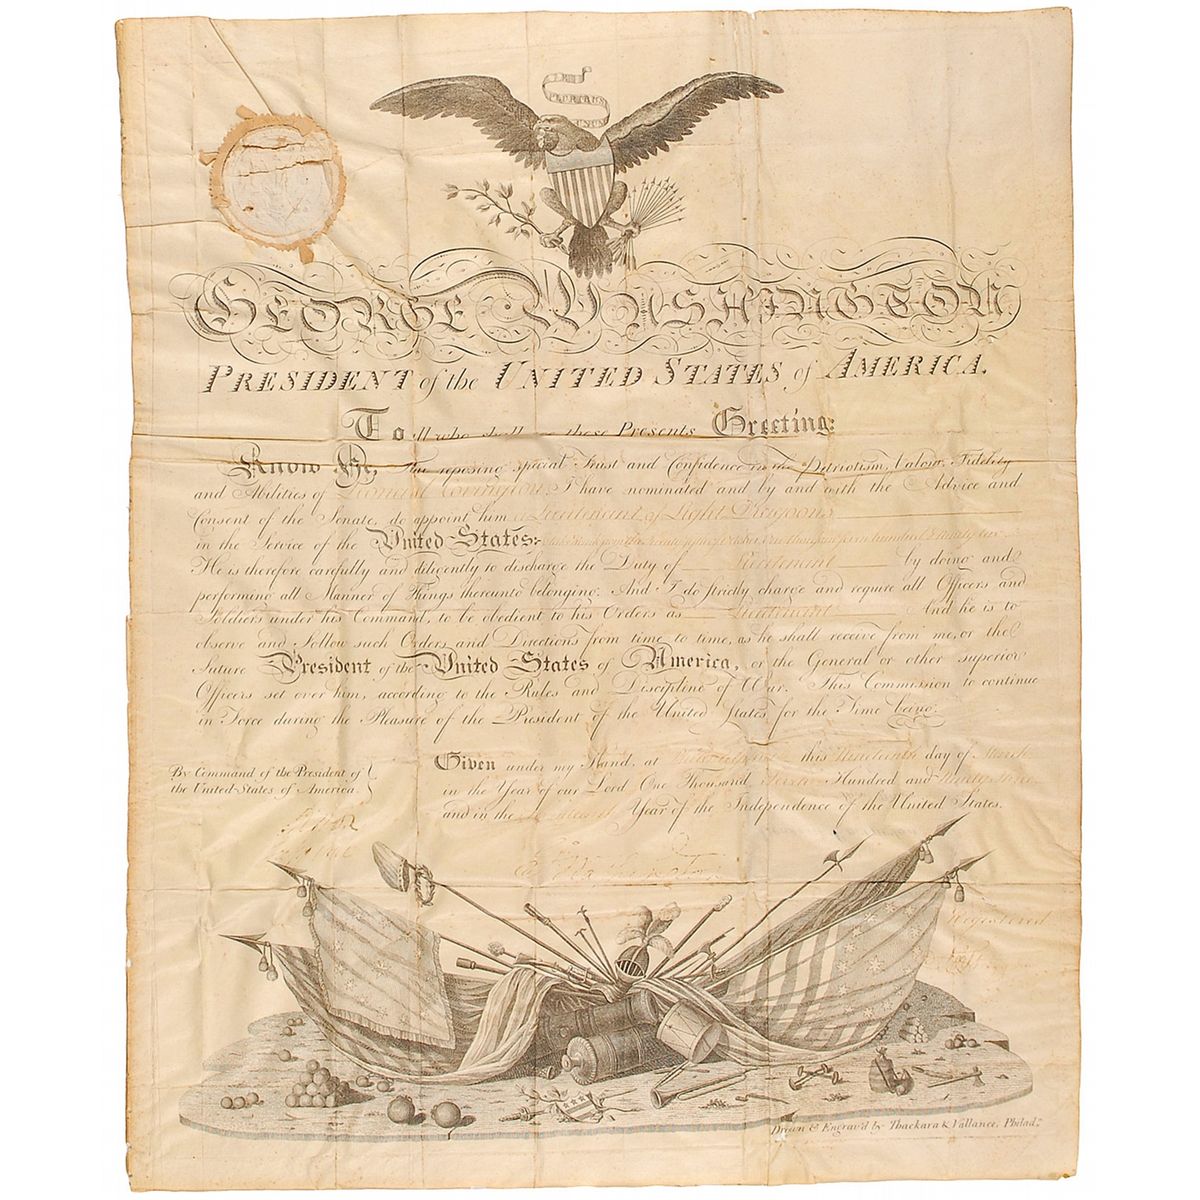 E PLURIBUS UNUM
GEORGE WASHINGTON
PRESIDENT of the UNITED STATES of AMERICA.
To all who shall see these Presents Greeting:
Know Ye, That reposing special Trust and Confidence in the Patriotism, Valour, Fidelity
and Abilities of Leonard Covington I have nominated and by and with the Advice and
Consent of the Senate, do appoint him a Lieutenant of Light Dragoons
in the Service of the United States: one thousand seven hundred & ninety two
He is therefore carefully and diligently to discharge the Duty of Lieutenant by doing and
performing all Manner of Things thereunto belonging. And I do strictly charge and require all Officers and
Soldiers under his Command, to be obedient to his Orders as Lieutenant And he is to
observe and follow such Orders and Directions from time to time, as he shall receive from me, or the
future President of the United States of America, or the General or other superior
Officers set over him, according to the Rules and Discipline of War. This Commission to continue
in Force during the Pleasure of the President of the United States for the Time being.
Given under my Hand, at Philadelphia this Nineteenth day of March
in the Year of our Lord One Thousand Seven Hundred and Ninety three
and in the Year of the Independence of the United States.
By Command of the President of
the United States of America.
Knox
Go Washington
Registered
Drawn & Engrav'd by Thackara & Vallance, Philada.